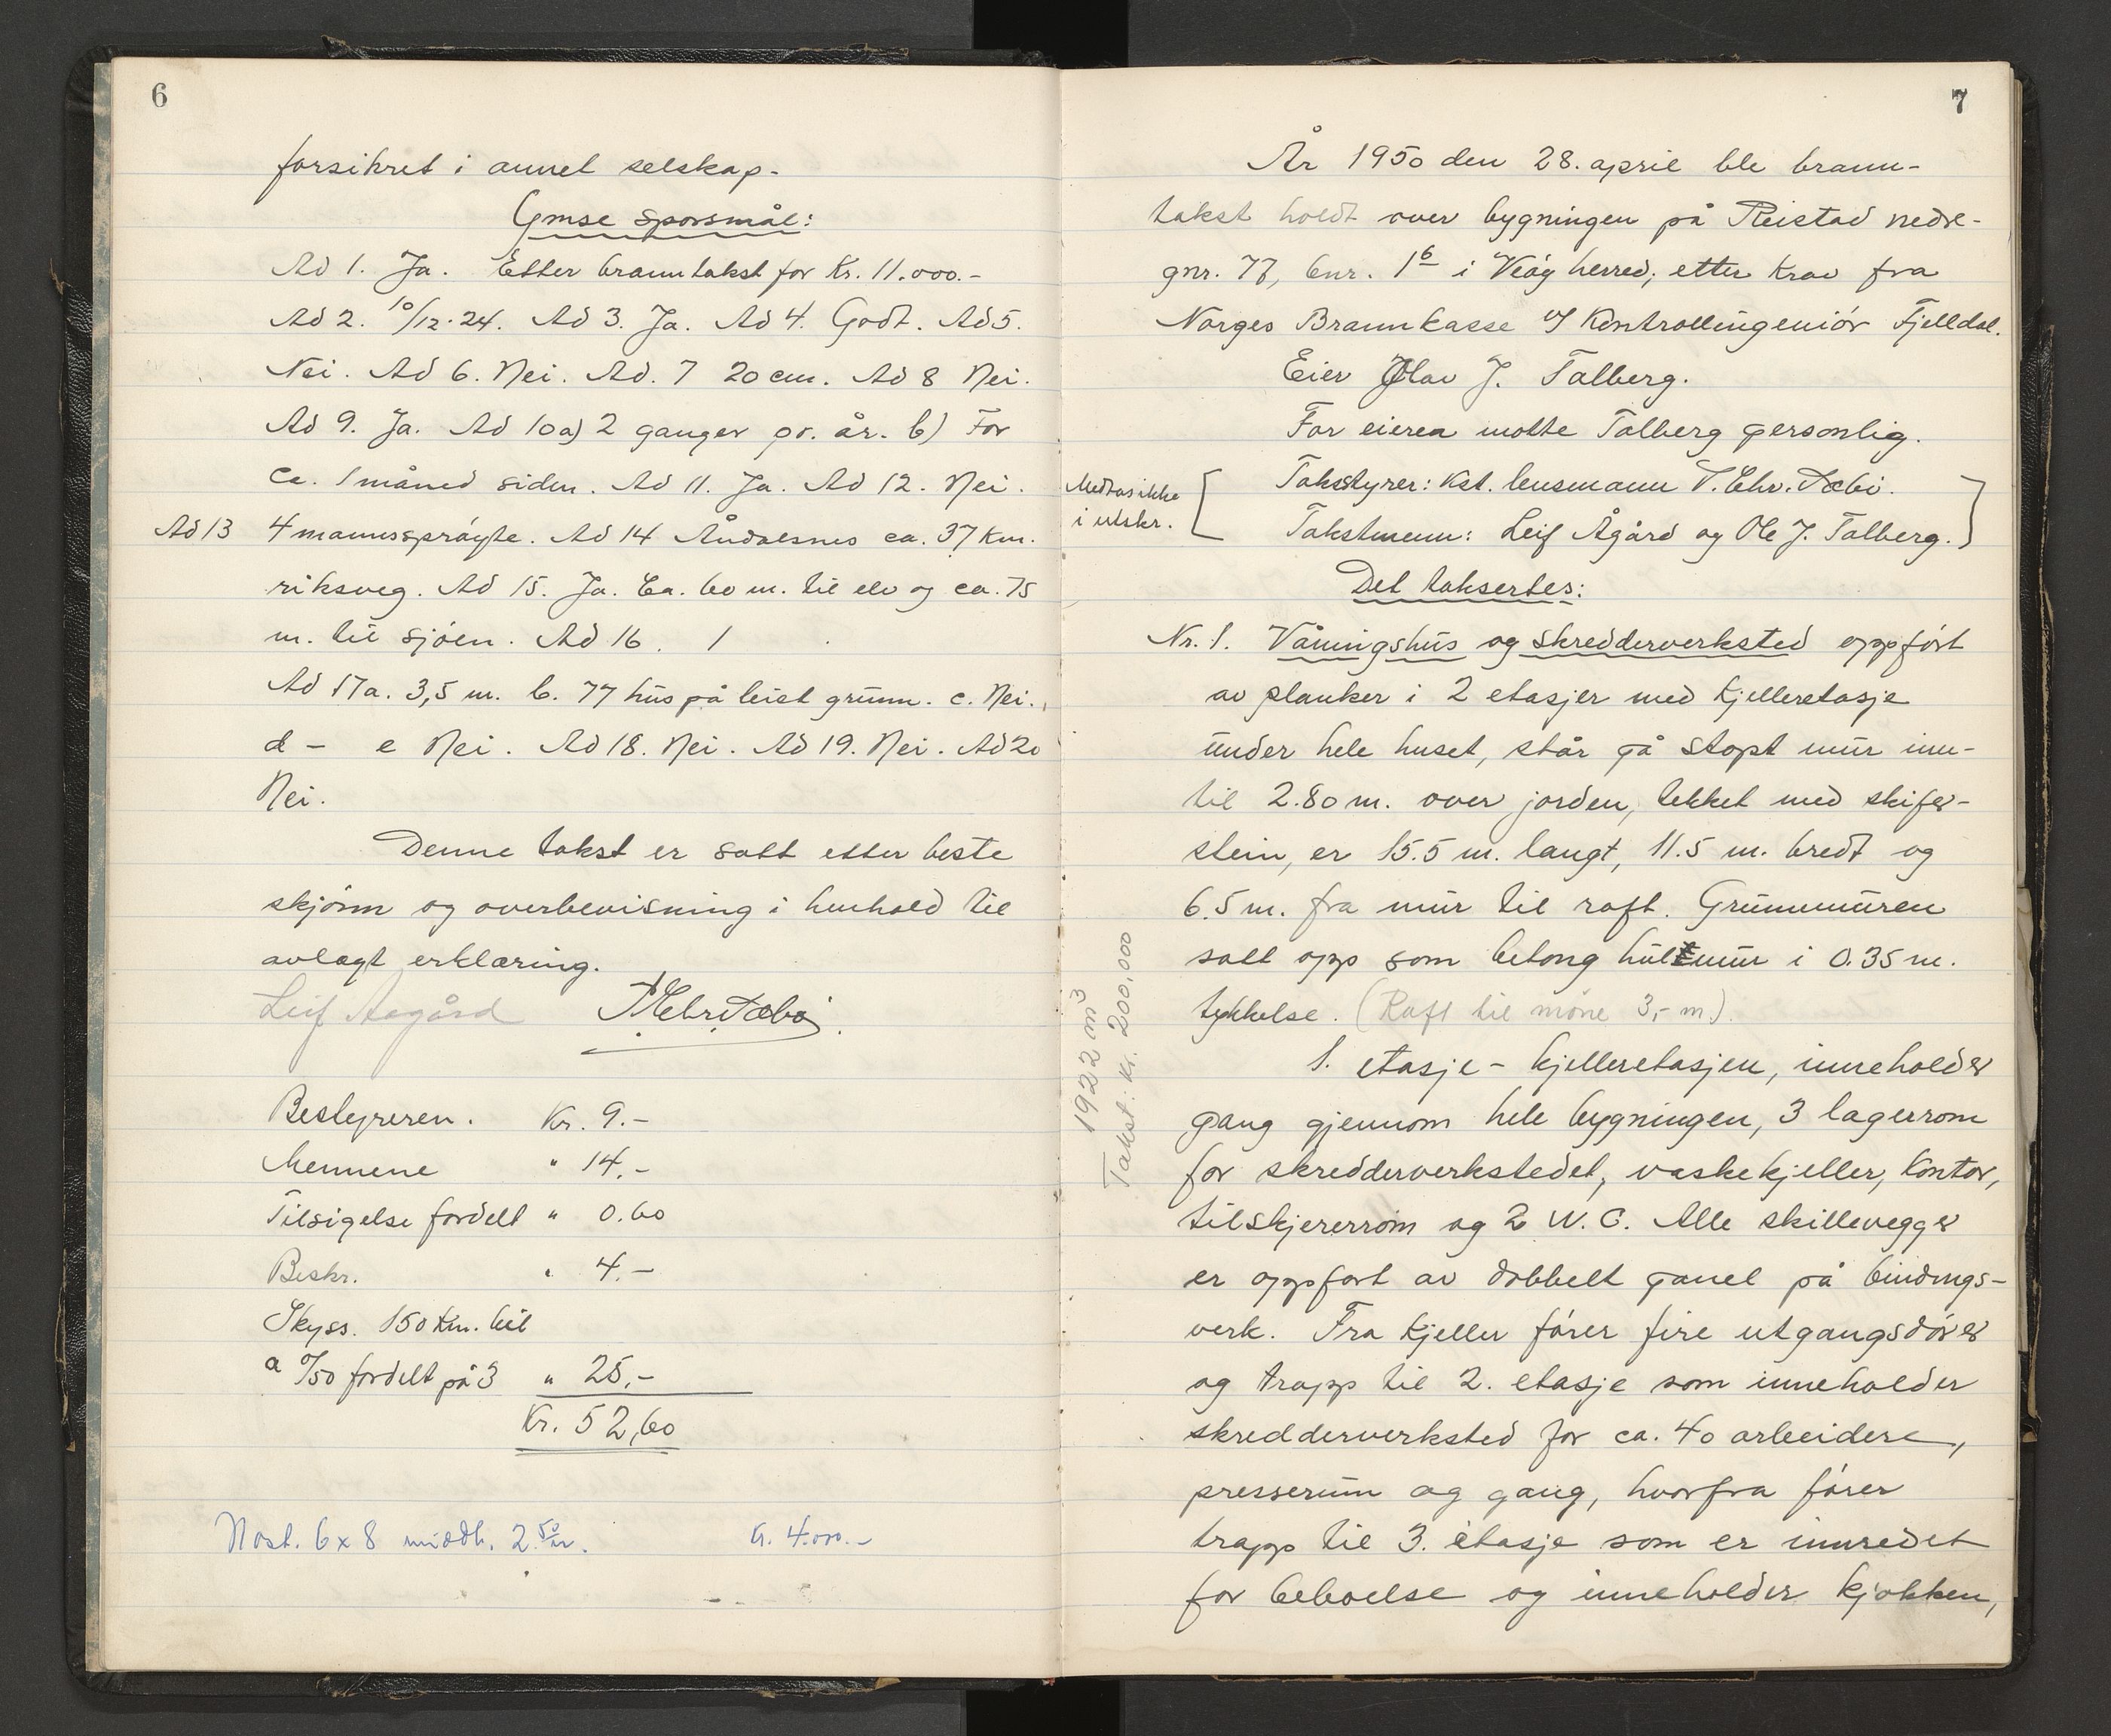 6
forsikret i annet selskap.
Ymse spørsmål:
Ad 1. Ja. Etter branntakst for Kr. 11.000.-
Ad 2. 10/12-24. Ad 3. Ja. Ad 4. Godt. Ad 5.
Nei. Ad 6. Nei. Ad. 7 20 cm. Ad 8 Nei.
Ad 9. Ja. Ad 10a) 2 ganger pr. år. b) For
ca. 1 måned siden. Ad 11. Ja. Ad 12. Nei.
Ad 13 4 mannssprøyte. Ad 14 Åndalsnes ca. 37 km.
riksveg. Ad 15. Ja. Ca. 60 m. til elv og ca. 75
m. til sjøen. Ad 16. 1
Ad 17a. 3,5 m. b. 77 hus på leiet grunn. c. Nei.
d - e Nei. Ad 18. Nei. Ad 19. Nei. Ad 20
Nei.
Denne takst er satt etter beste
skjønn og overbevisning i henhold til
avlagt erklæring.
Leif Aagård
Bestyreren. Kr. 9.-
Mennene " 14.-
Tilsigelse fordelt " 0.60
Beskr. " 4.-
Skyss. 150 km. bil
a 0/50 fordelt på 3 " 25.-
Kr. 52,60
Nost. 6 x 8 middh. 2.50 m. Kr. 4.000.-
7
År 1950 den 28. april ble brann-
takst holdt over bygningen på Reistad nedre-
gnr. 77, bnr. 16 i Veøy herred, etter krav fra
Norges Brannkasse v/ Kontrollingeniør Fjelldal.
Eier Olav J. Talberg.
For eieren møtte Talberg personlig.
Medtas ikke
i utskr.
Takstyrer: Kst. lensmann T. Chr. Dæbi.
Takstmenn: Leif Ågård og Ole J. Talberg.
Det taksertes:
Nr. 1. Våningshus og skredderverksted oppført
av planker i 2 etasjer med kjelleretasje
under hele huset, står på støpt mur inn-
til 2.80 m. over jorden, tekket med skifer-
stein, er 15.5 m. langt, 11.5 m. bredt og
6.5 m. fra mur til raft. Grunnmuren
satt opp som betong hulmur i 0.35 m.
tykkelse. (Raft til møne 3,- m).
1922 m3
Takst: Kr. 200,000
1. etasje - kjelleretasjen, inneholder
gang gjennom hele bygningen, 3 lagerrom
for skredderverkstedet, vaskekjeller, kontor,
tilskjererrom og 2 W. C. Alle skillevegger
er oppført av dobbelt panel på bindings-
verk. Fra kjeller fører fire utgangsdører
og trapp til 2. etasje som inneholder
skredderverksted for ca. 40 arbeidere,
presserum og gang, hvorfra fører
trapp til 3. etasje som er innredet
for beboelse og inneholder kjøkken,